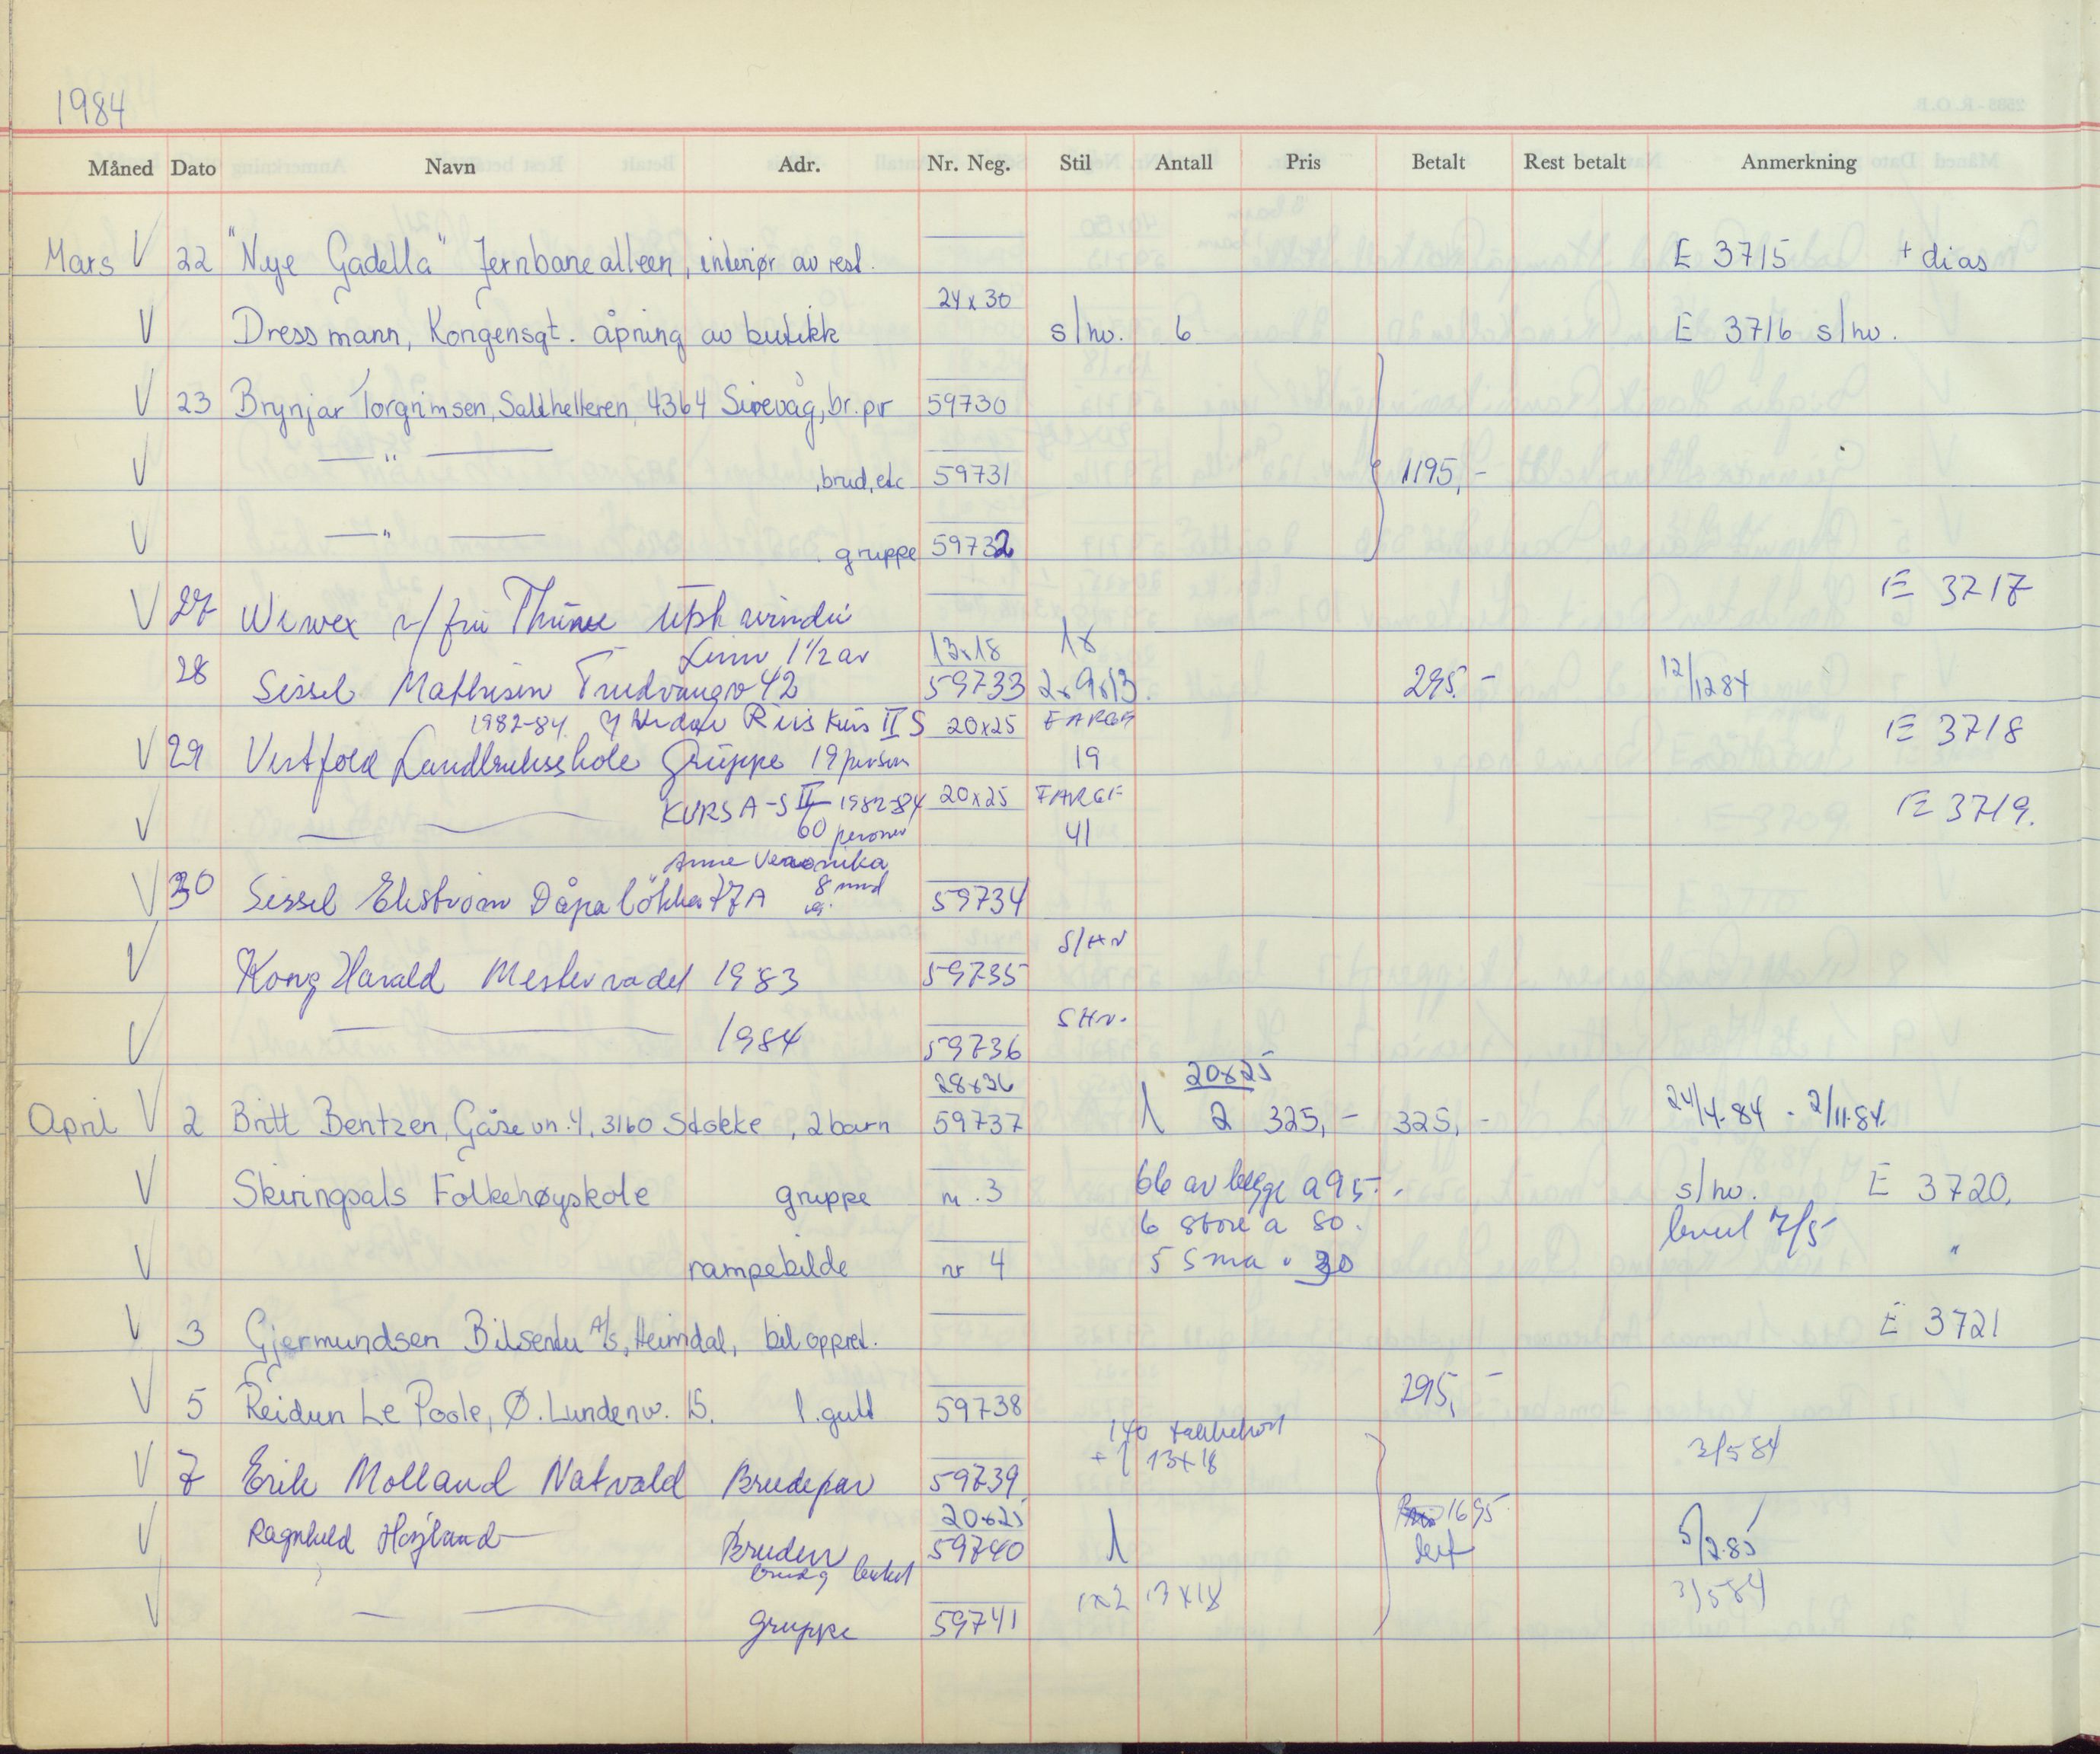 1984
Måned Dato Navn Adr. Nr. Neg. Stil Antall Pris Betalt Rest betalt Anmerkning
Mars V 22 "Nye Gadella" Jernbanealleen, interiør av rest. E 3715 + dias
24x30
V Dressmann, Kongensgt. åpning av butikk s/hv. 6 E 3716 s/hv.
V 23 Brynjar Torgrimsen, Salthelleren, 4364 Sirevåg, br.pr 59730
V — " — , brud, etc 59731 1195,-
V — " — gruppe 59732
V 27 Wewex v/ fru E 3717
1½ år 13x18 18
28 Sissel Mathisen Trudvangv 42 59733 2x9x13 295.- 12/12 84
1982-84. Riis Kurs II S 20x25 FARGE E 3718
V 29 Vestfold Landbruksskole Gruppe 19 person 19
KURS A-S II 1982-84 20x25 FARGE E 3719.
V — 60 personer 41
Anne Veronika
8 mnd
V 30 Sissel Ekstrøm Dåpaløkka 77A 59734
S/HV
V Kong Harald Mesterradet 1983 59735
SHv.
V — 1984 59736
28x36 20x25
April V 2 Britt Bentzen, Gåsevn. 4, 3160 Stokke, 2 barn 59737 1 2 325,- 325,- 24/4-84 - 2/11-84.
V Skiringsals Folkehøyskole gruppe nr. 3 bb av begge a 95.- s/hv. E 3720.
6 store a 80. levert 7/5
V rampebilde nr 4 5 små " 30 "
V 3 Gjermundsen Bilsenter A/S, Heimdal, bil oppret. E 3721
V 5 Reidun Le Poole, Ø. Lundenv. 15. 1. gutt 59738 295,-
140 takkekort
+ 1 13x18 3/5 84
V 7 Erik Molland Natvald Brudepar 59739
20x25 1695
V Ragnhild Højland Bruden 59740 1 5/2.85
brud og 1x2 13x18 3/5 84
V — gruppe 59741